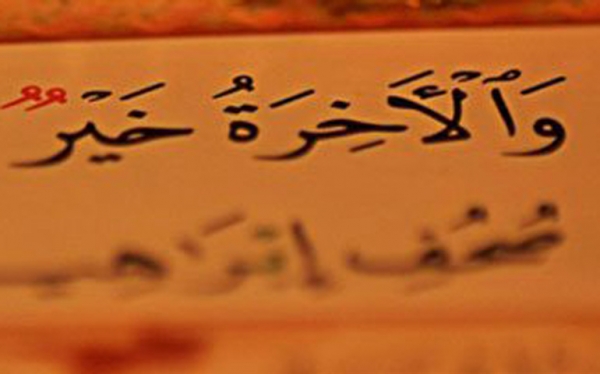 وَٱلْأَخِرَةُ خَيْرٌ
صُحُفِ إِبْرَاهِيـ